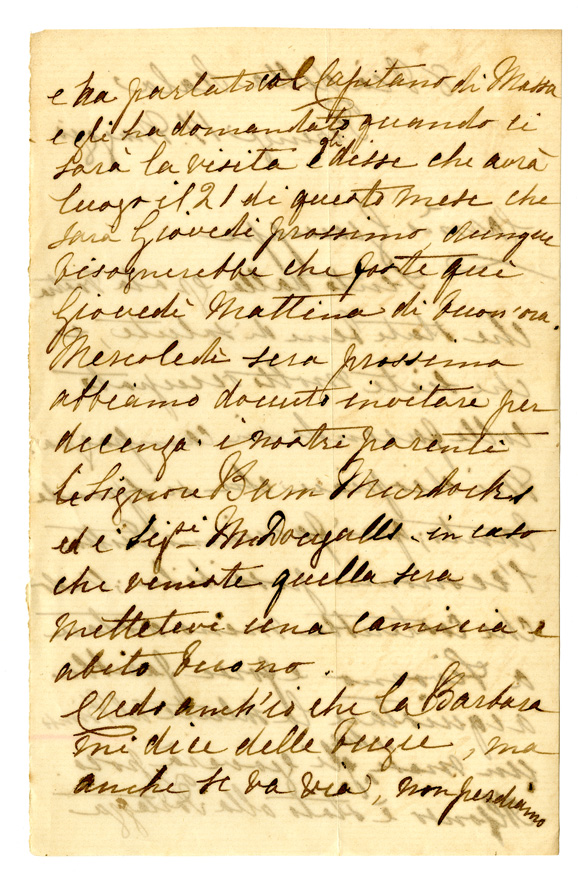 e ha parlato col Capitano di Massa
e gli ha domandato quando ci
sarà la visita e gli disse che avrà
luogo il 21 di questo mese che
sarà Giovedì prossimo, dunque
bisognerebbe che foste qui
Giovedì Mattina di buon'ora.
Mercoledì sera prossima
abbiamo dovuto invitare per
decenza i nostri parenti
le Signore Bam Murdocks
ed i Sigri McDougalls in caso
che veniste quella sera
mettetevi una camicia e
abito buono.
Credo anch'io che la Barbara
mi dice delle bugie, ma
anche se va via, non perdiamo